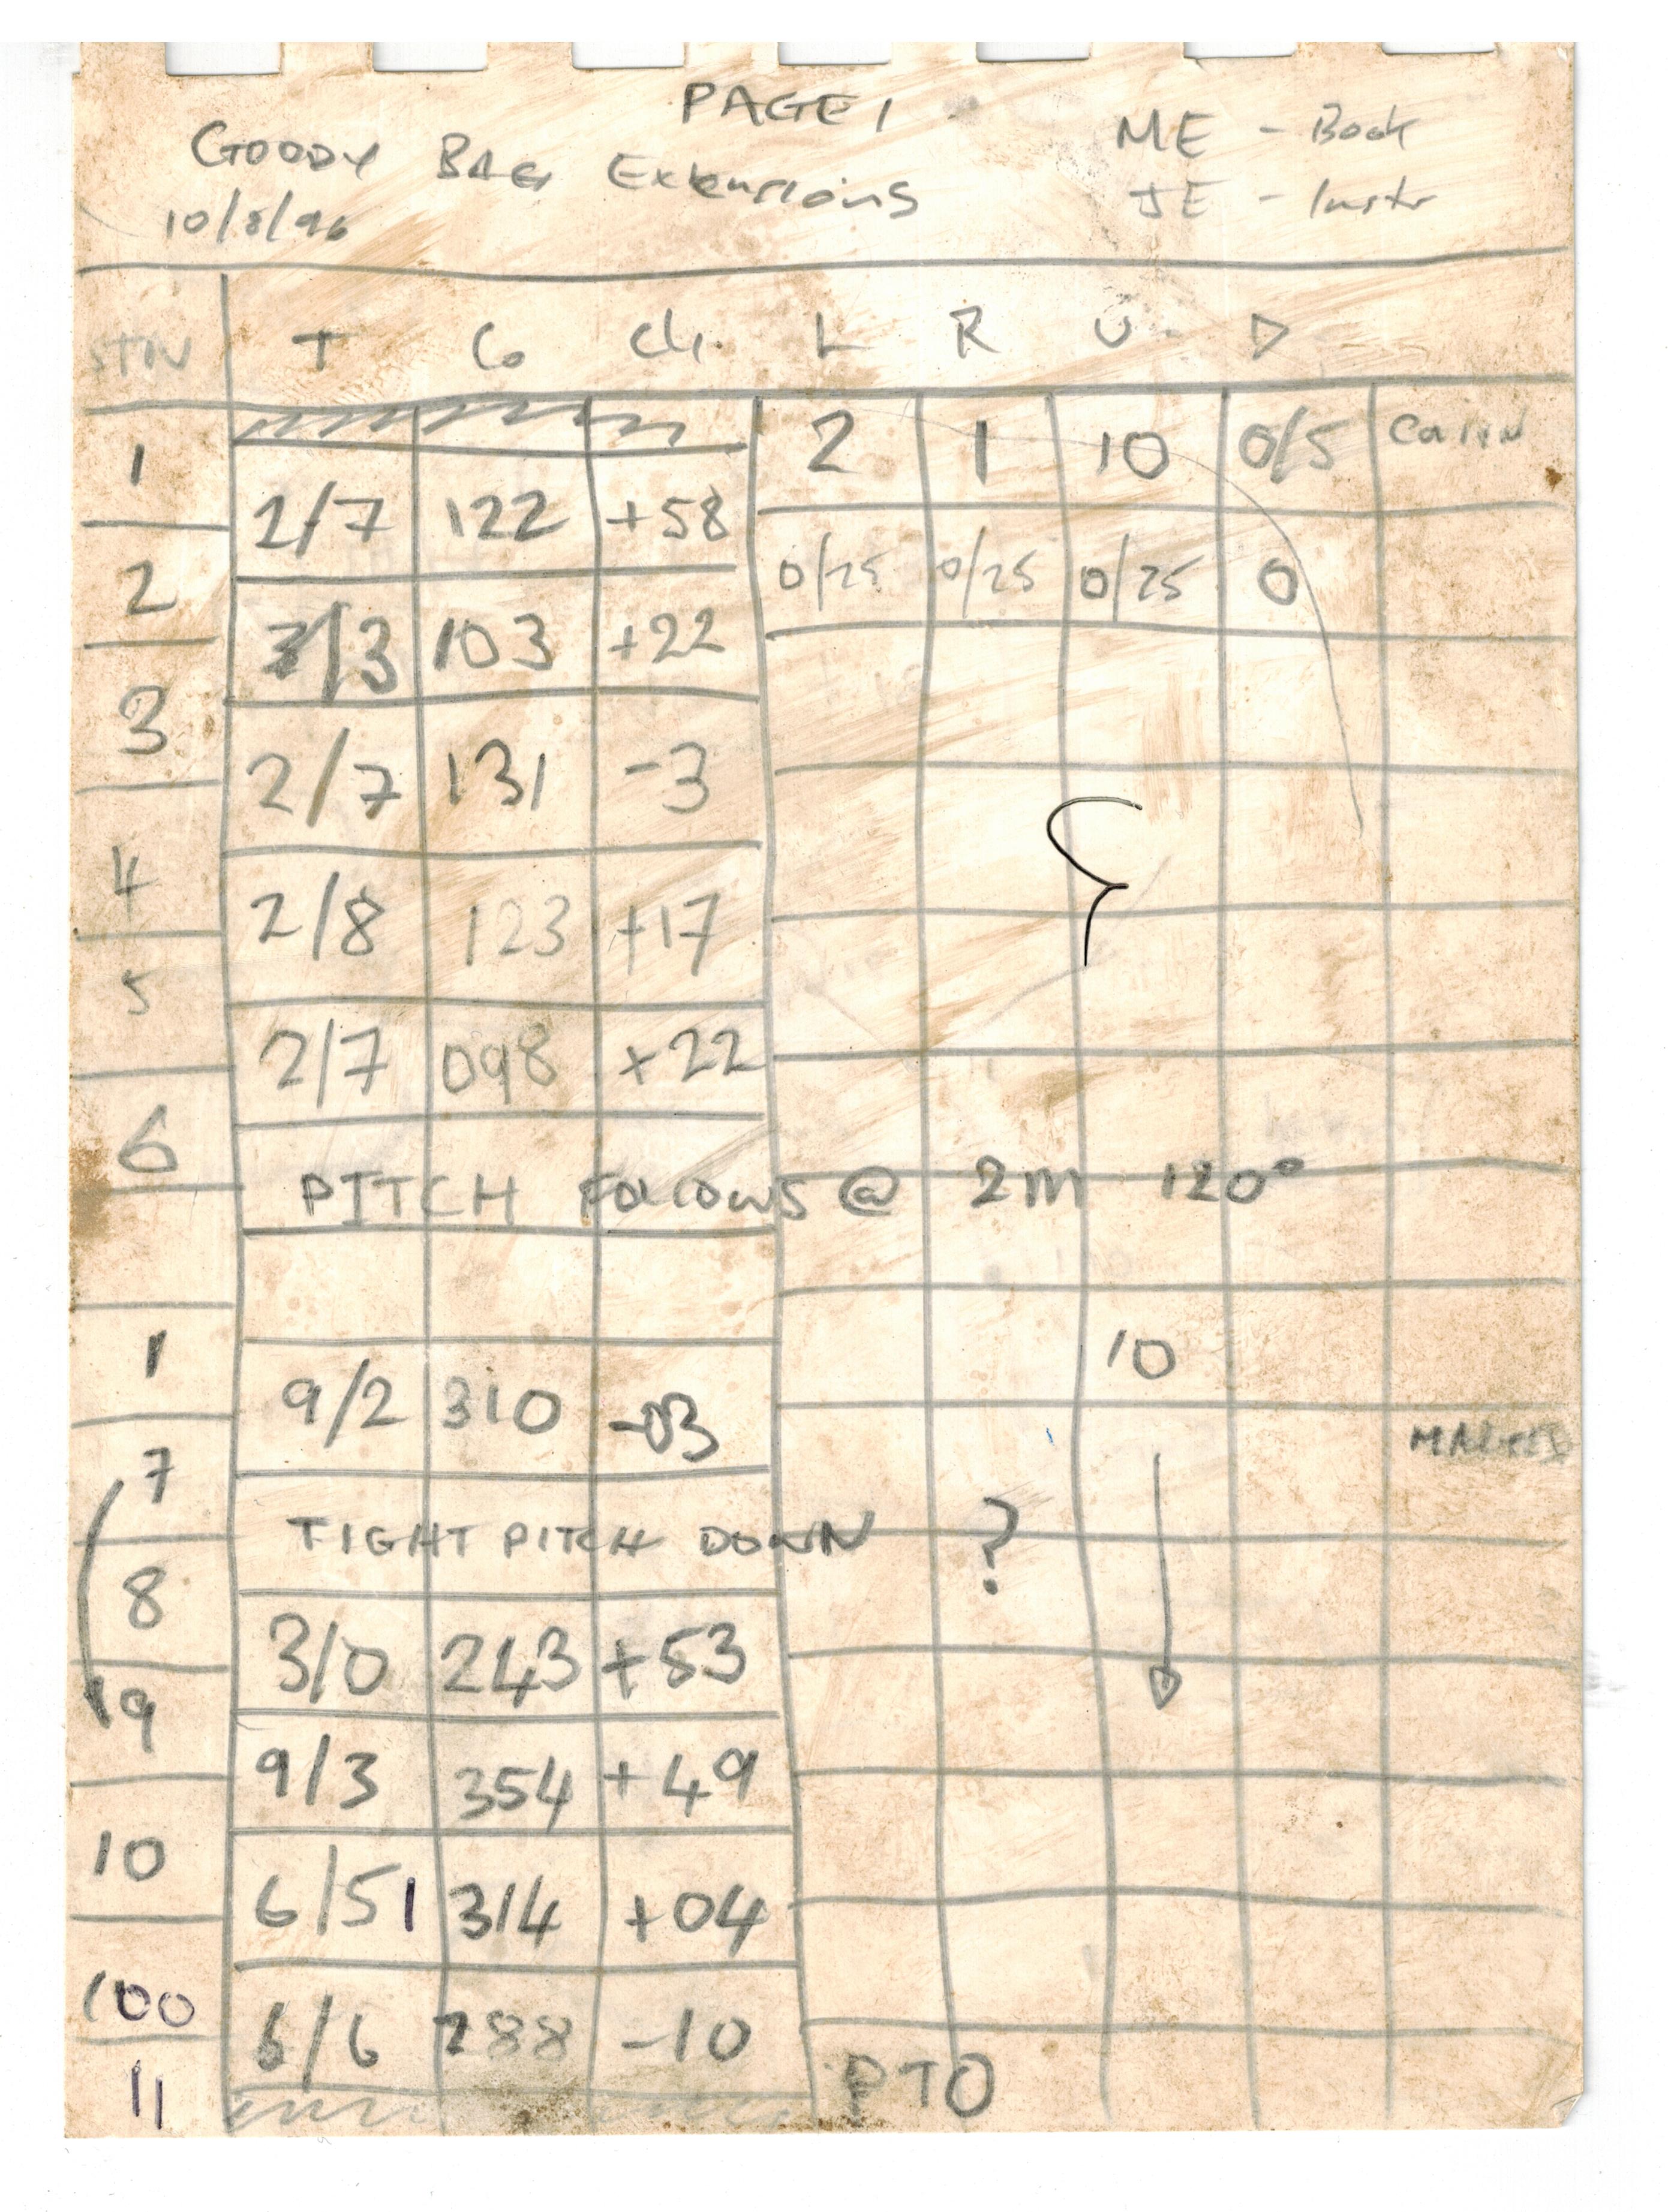 PAGE 1
GOODY BAG Extensions
ME - Book
JE - Instr
10/8/96
STN T Co Cli L R U D
1 2 1 10 0/5 Cairn
2/7 122 +58
2 0/25 0/25 0/25 0
3/3 103 +22
3
2/7 131 -3
4
2/8 123 +17
5
2/7 098 +22
6
PITCH FOLLOWS @ 2m 120°
1 10
9/2 310 -03
7
TIGHT PITCH DOWN ?
8
3/0 243 +53
9
9/3 354 +49
10
6/51 314 +04
100
6/6 288 -10
11
PTO